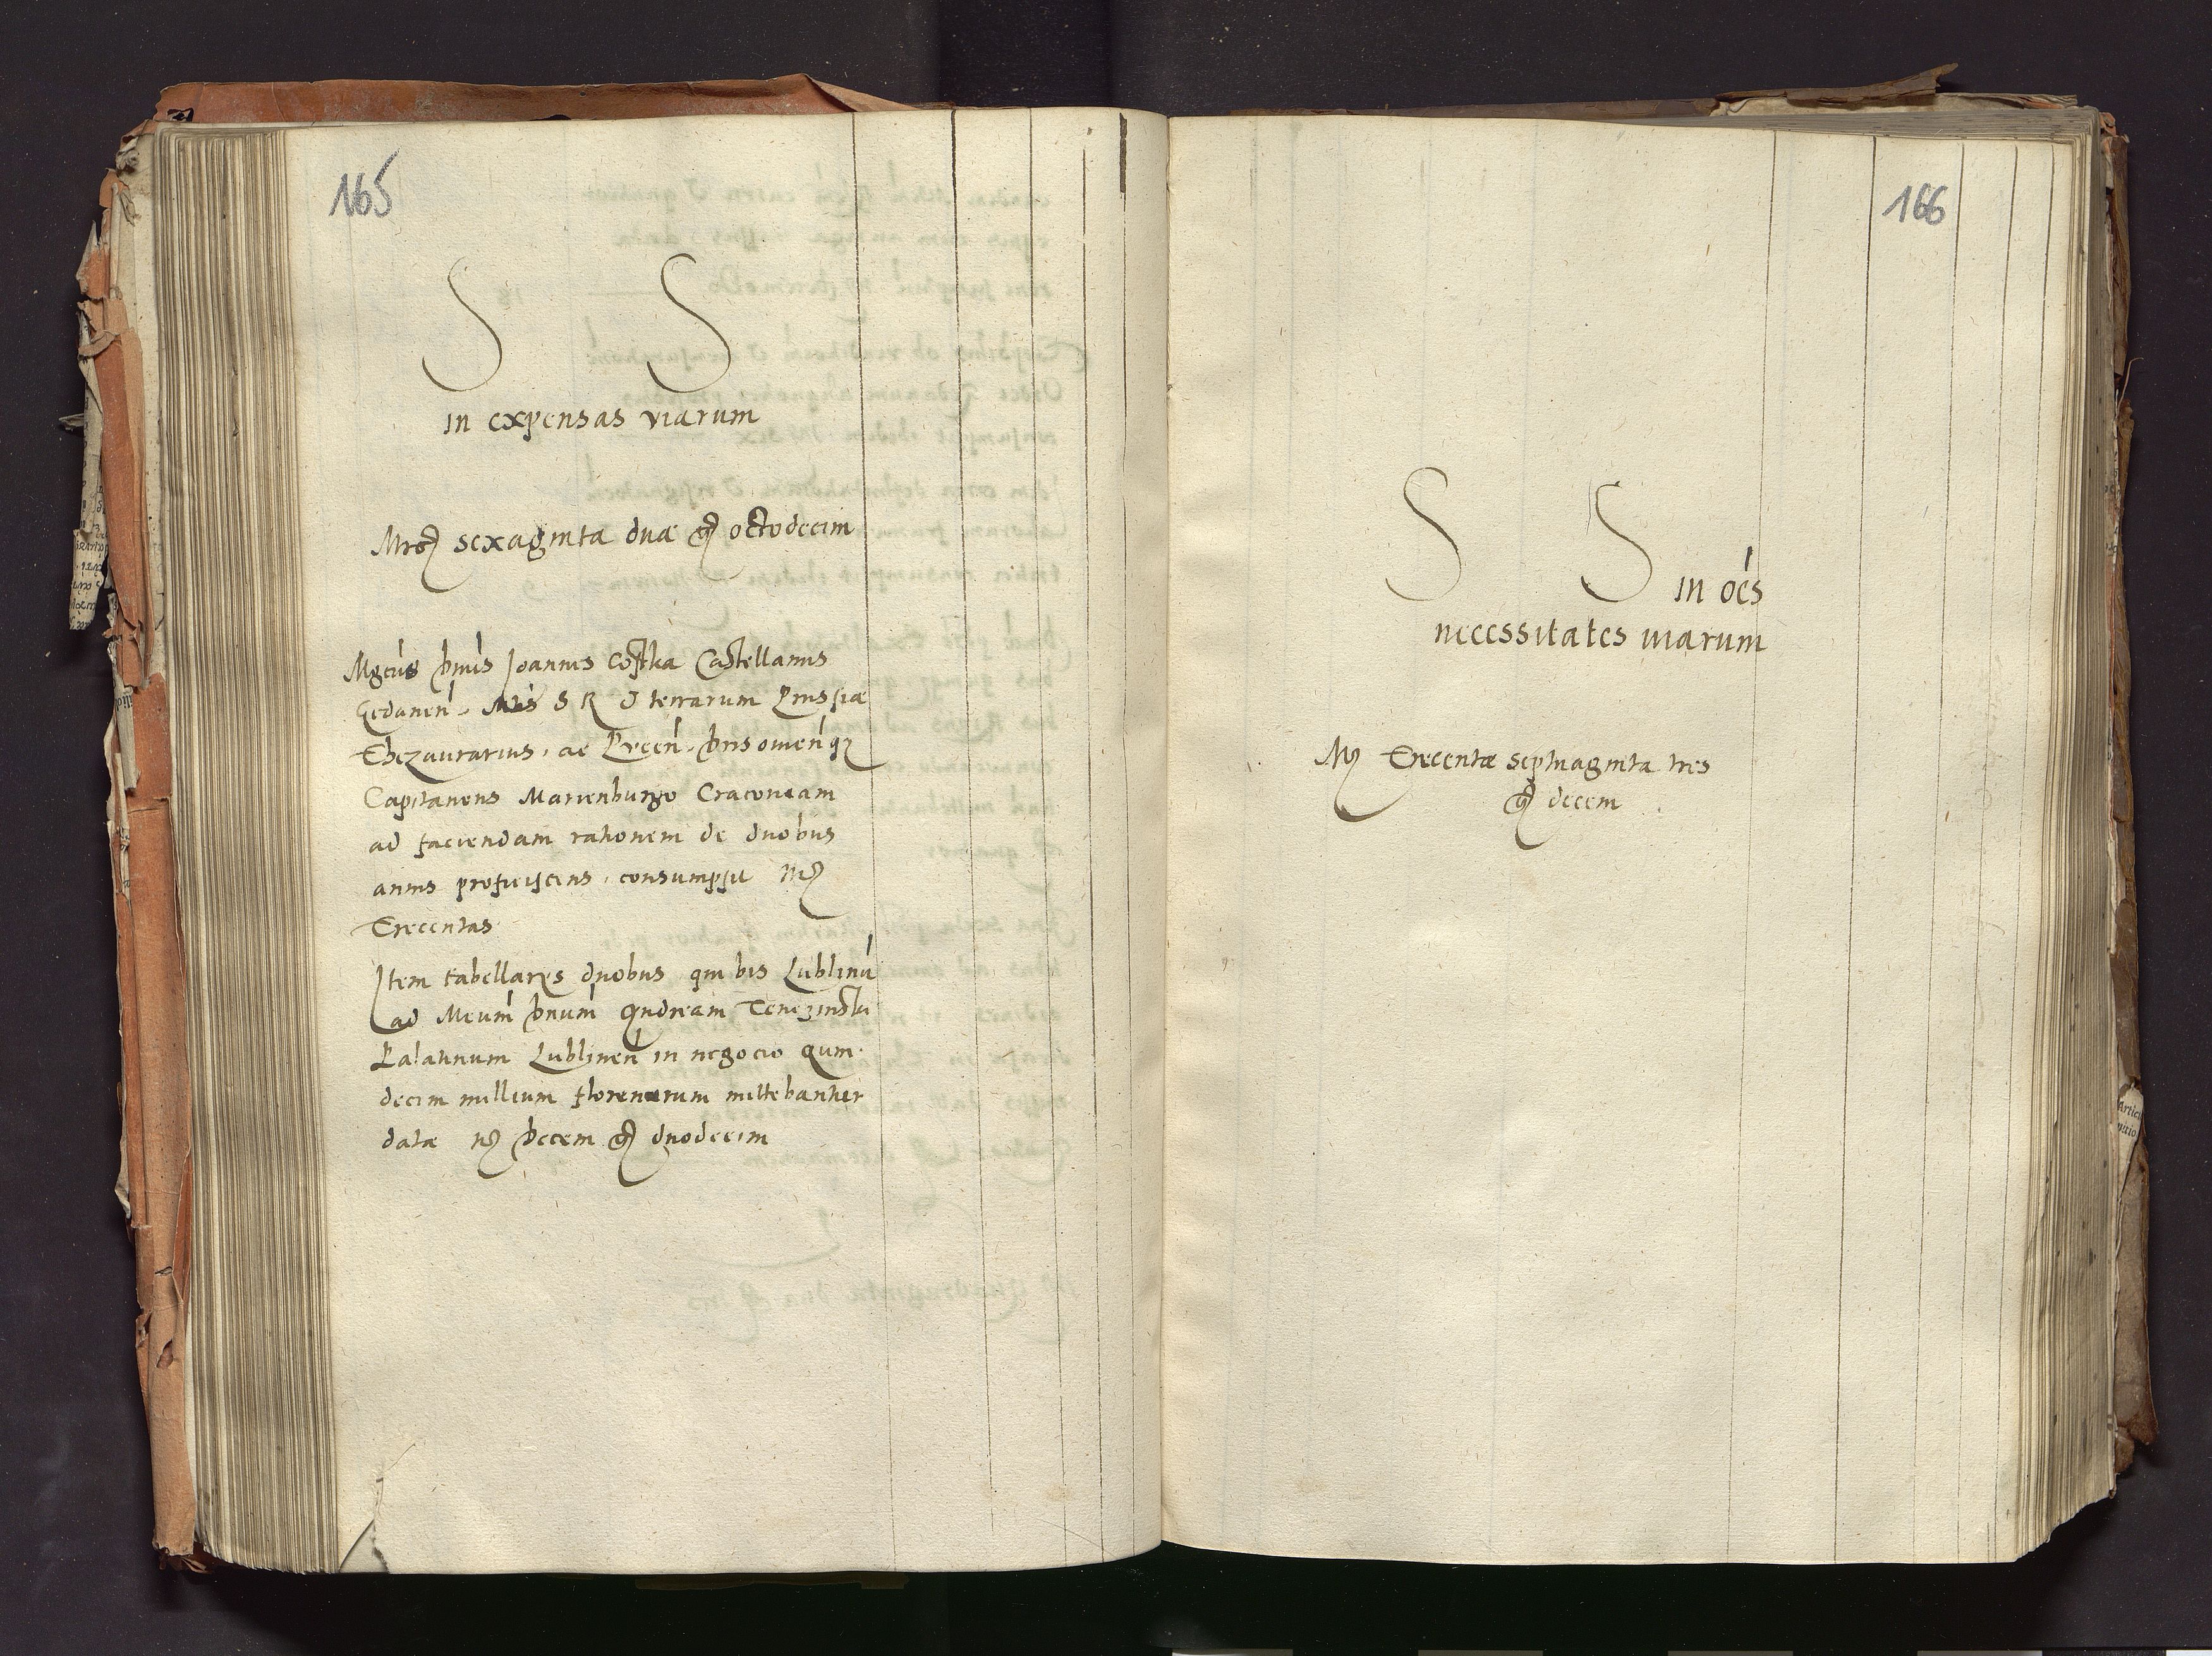 165
S S
in expensas viarum
Mrc sexaginta duæ gr octodecim
Mgcus Dnus Joannes Costka Castellanus
Gedanen. Mtis S R J terrarum Prussiæ
Thezaurarius, ac Pvcen. Dersovienq
Capitaneus Marienburgo Cracoviam
ad faciendam rationem de duobus
annis proficiscens, consumpsit Mr
Trecentas
Item tabellarijs duobus qui bis Lublinu
ad Mcum Dnum Andream Tenczinski
Palatinum Lublinen in negocio quin
decim millium florenorum mittebantur
datæ Mr Decem gr duodecim
166
S S in oes
necessitates viarum
Mr Trecentæ septuaginta tres
gr decem